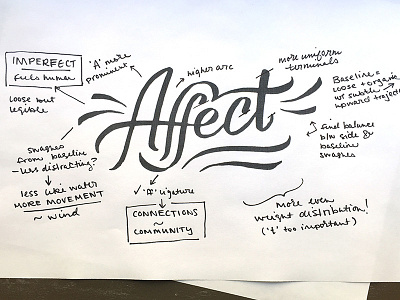 IMPERFECT
feels human
loose but
legible
'A' more
prominent
higher arc
more uniform
terminals
Baseline is
loose + organic
w/ subtle
upward
Affect
final balance
b/w side &
baseline
swashes
swashes
from baseline
- less distracting?
less like water
MORE MOVEMENT
~ wind
✓ 'ff' ligature
CONNECTIONS
~
COMMUNITY
more even
weight distribution!
('t' too important)